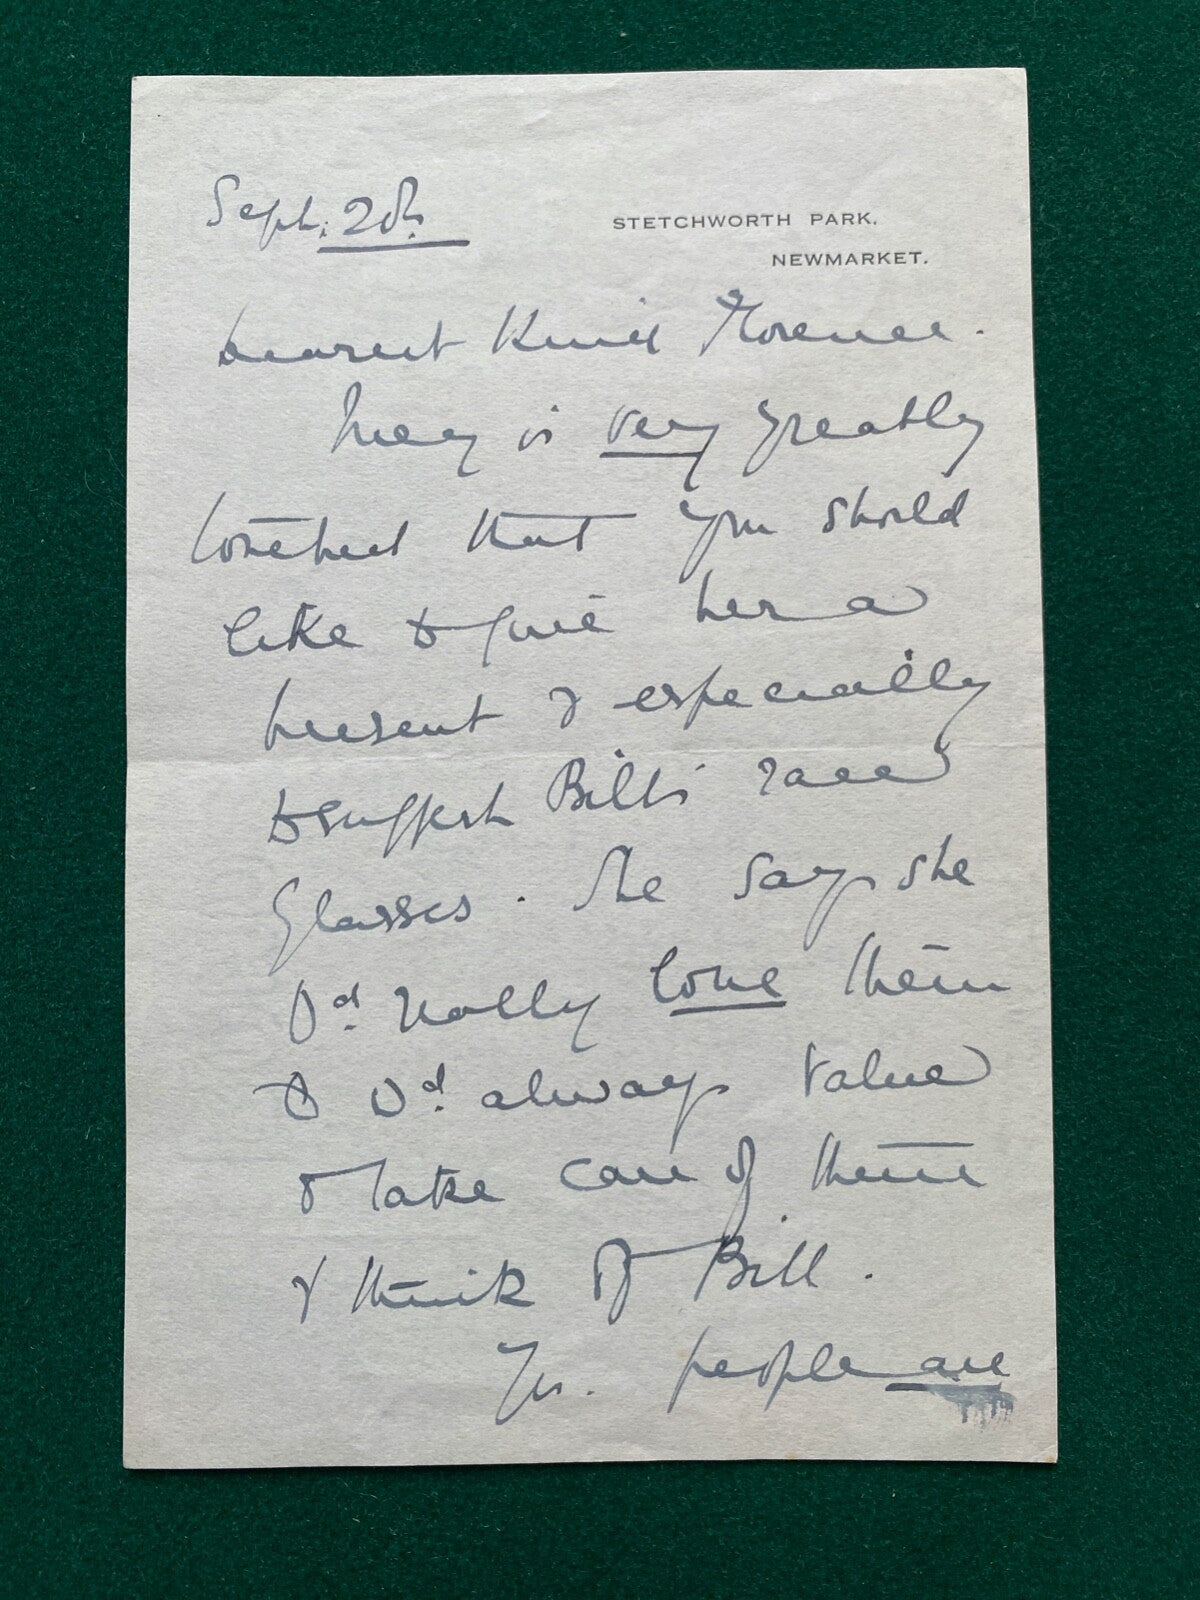 Sept. 20th
STETCHWORTH PARK,
NEWMARKET.
Dearest Kind Florence.
Mary is very greatly
touched that you should
like to give her a
present & especially
to suggest Bill's race
glasses. She says she
wd. really love them
& wd. always value
& take care of them
& think of Bill.
Yes. people are